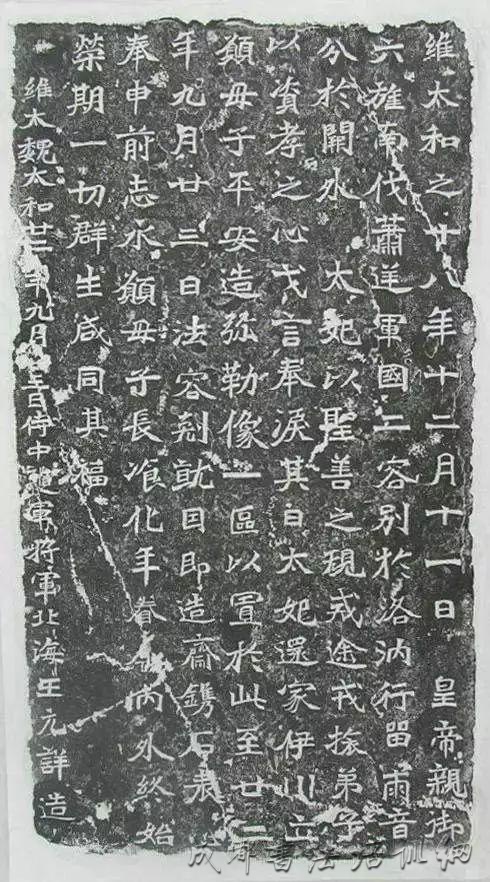 維太和之十八年十二月十一日 皇帝親御
六旌南伐蕭逆軍國二容別於洛汭行留兩音
分於闕外 太妃以聖善之規戒途戎旅弟子
以資孝之心戈言奉淚其日太妃還家伊川立
願母子平安造弥勒像一區以置於此至廿二
年九月廿三日法容剋就因即造齋鐫石表
奉申前志永願母子長飡化年眷內外終始
榮期一切群生咸同其福
維大魏太和廿二年九月廿三日侍中護軍將軍北海王元詳造
成都書法培訓網